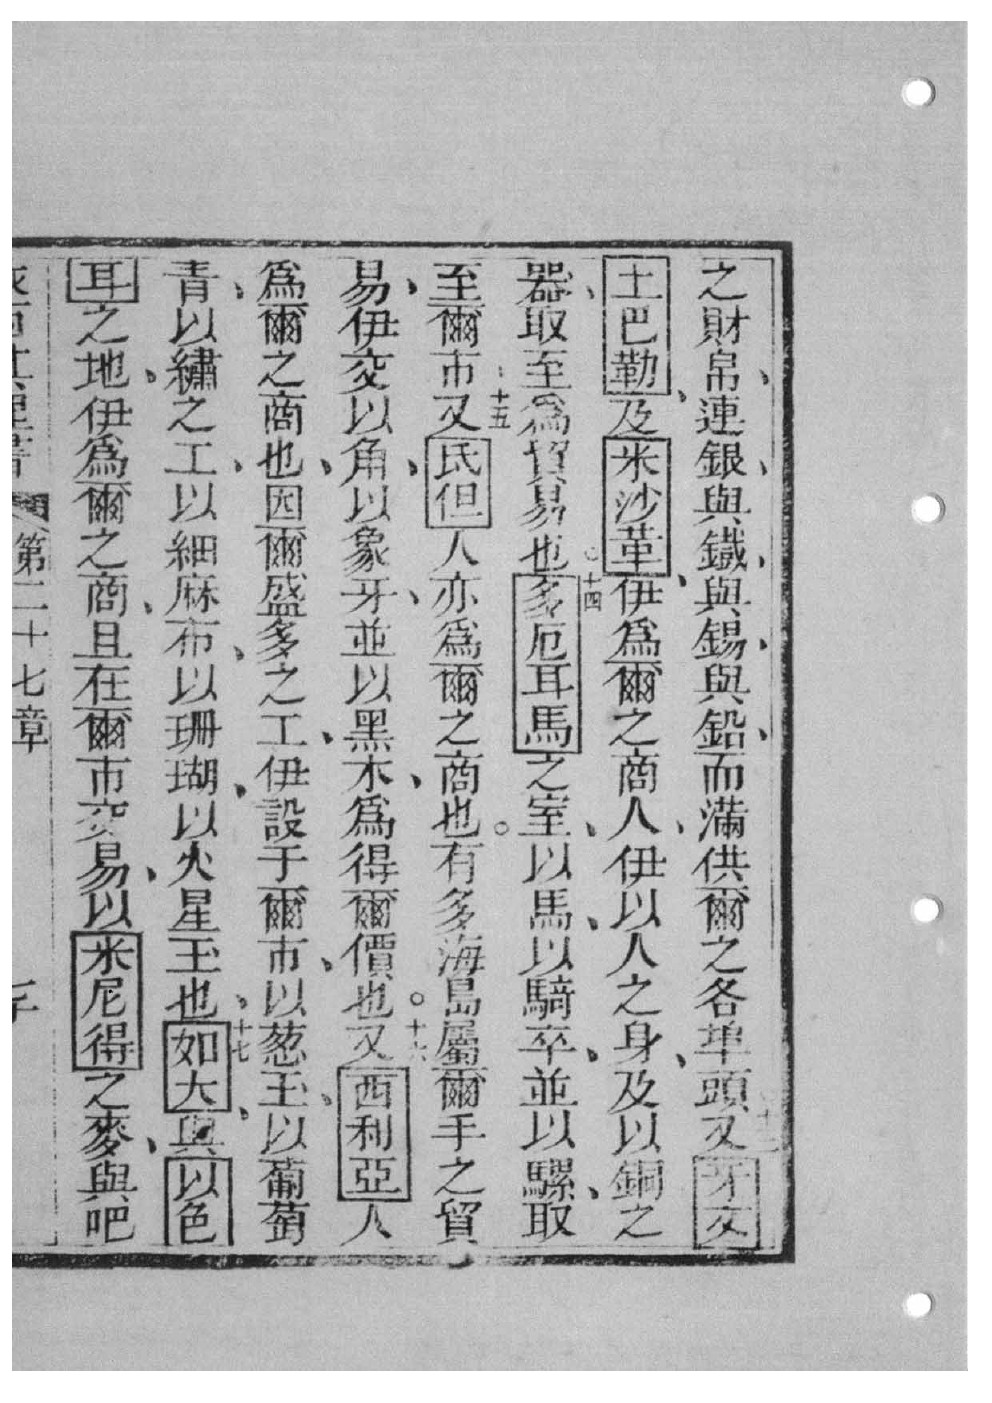 之財帛、連銀、與鐵、與錫、與鉛、而滿供爾之各埠頭十三又牙文
土巴勒、及米沙革、伊爲爾之商人、伊以人之身、及以銅之
器、取至爲貿易也。十四多厄耳馬之室、以馬、以騎卒、並以騾、取
至爾市、十五又氐但人亦爲爾之商也。有多海島屬爾手之貿
易、伊交以角、以象牙、並以黑木、爲得爾價也。十六又西利亞人
爲爾之商也、因爾盛多之工、伊設于爾市、以葱玉、以葡萄
青、以繡之工、以細麻布、以珊瑚、以火星玉也、十七如大、與以色
耳之地、伊爲爾之商、且在爾市交易、以米尼得之麥、與吧
書 第二十七章